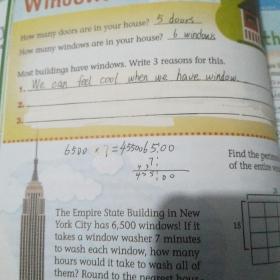 WINDOW
How many doors are in your house? 5 doors
How many windows are in your house? 6 windows
Most buildings have windows. Write 3 reasons for this.
1. We can feel cool when we have window
2.
3.
6500 × 7 = 45500
6500
7
45500
Find the
of the entire
15
The Empire State Building in New
York City has 6,500 windows! If it
takes a window washer 7 minutes
to wash each window, how many
hours would it take to wash all of
them? Round to the nearest hour.